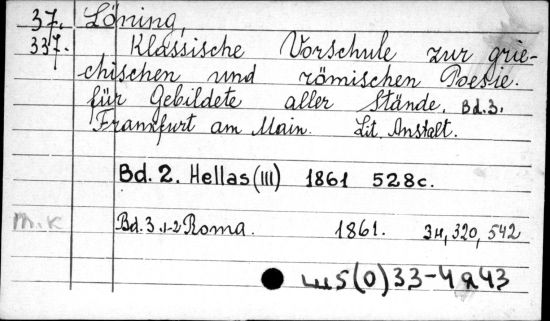 37. Löning,
337. Klassische Vorschule zur grie-
chischen und römischen Poesie.
für Gebildete aller Stände. Bd. 3.
Frankfurt am Main. Lit. Anstalt.
Bd. 2. Hellas (III) 1861 528c.
m.k Bd. 3.1-2 Roma. 1861. 320, 542
(0)33-4я43